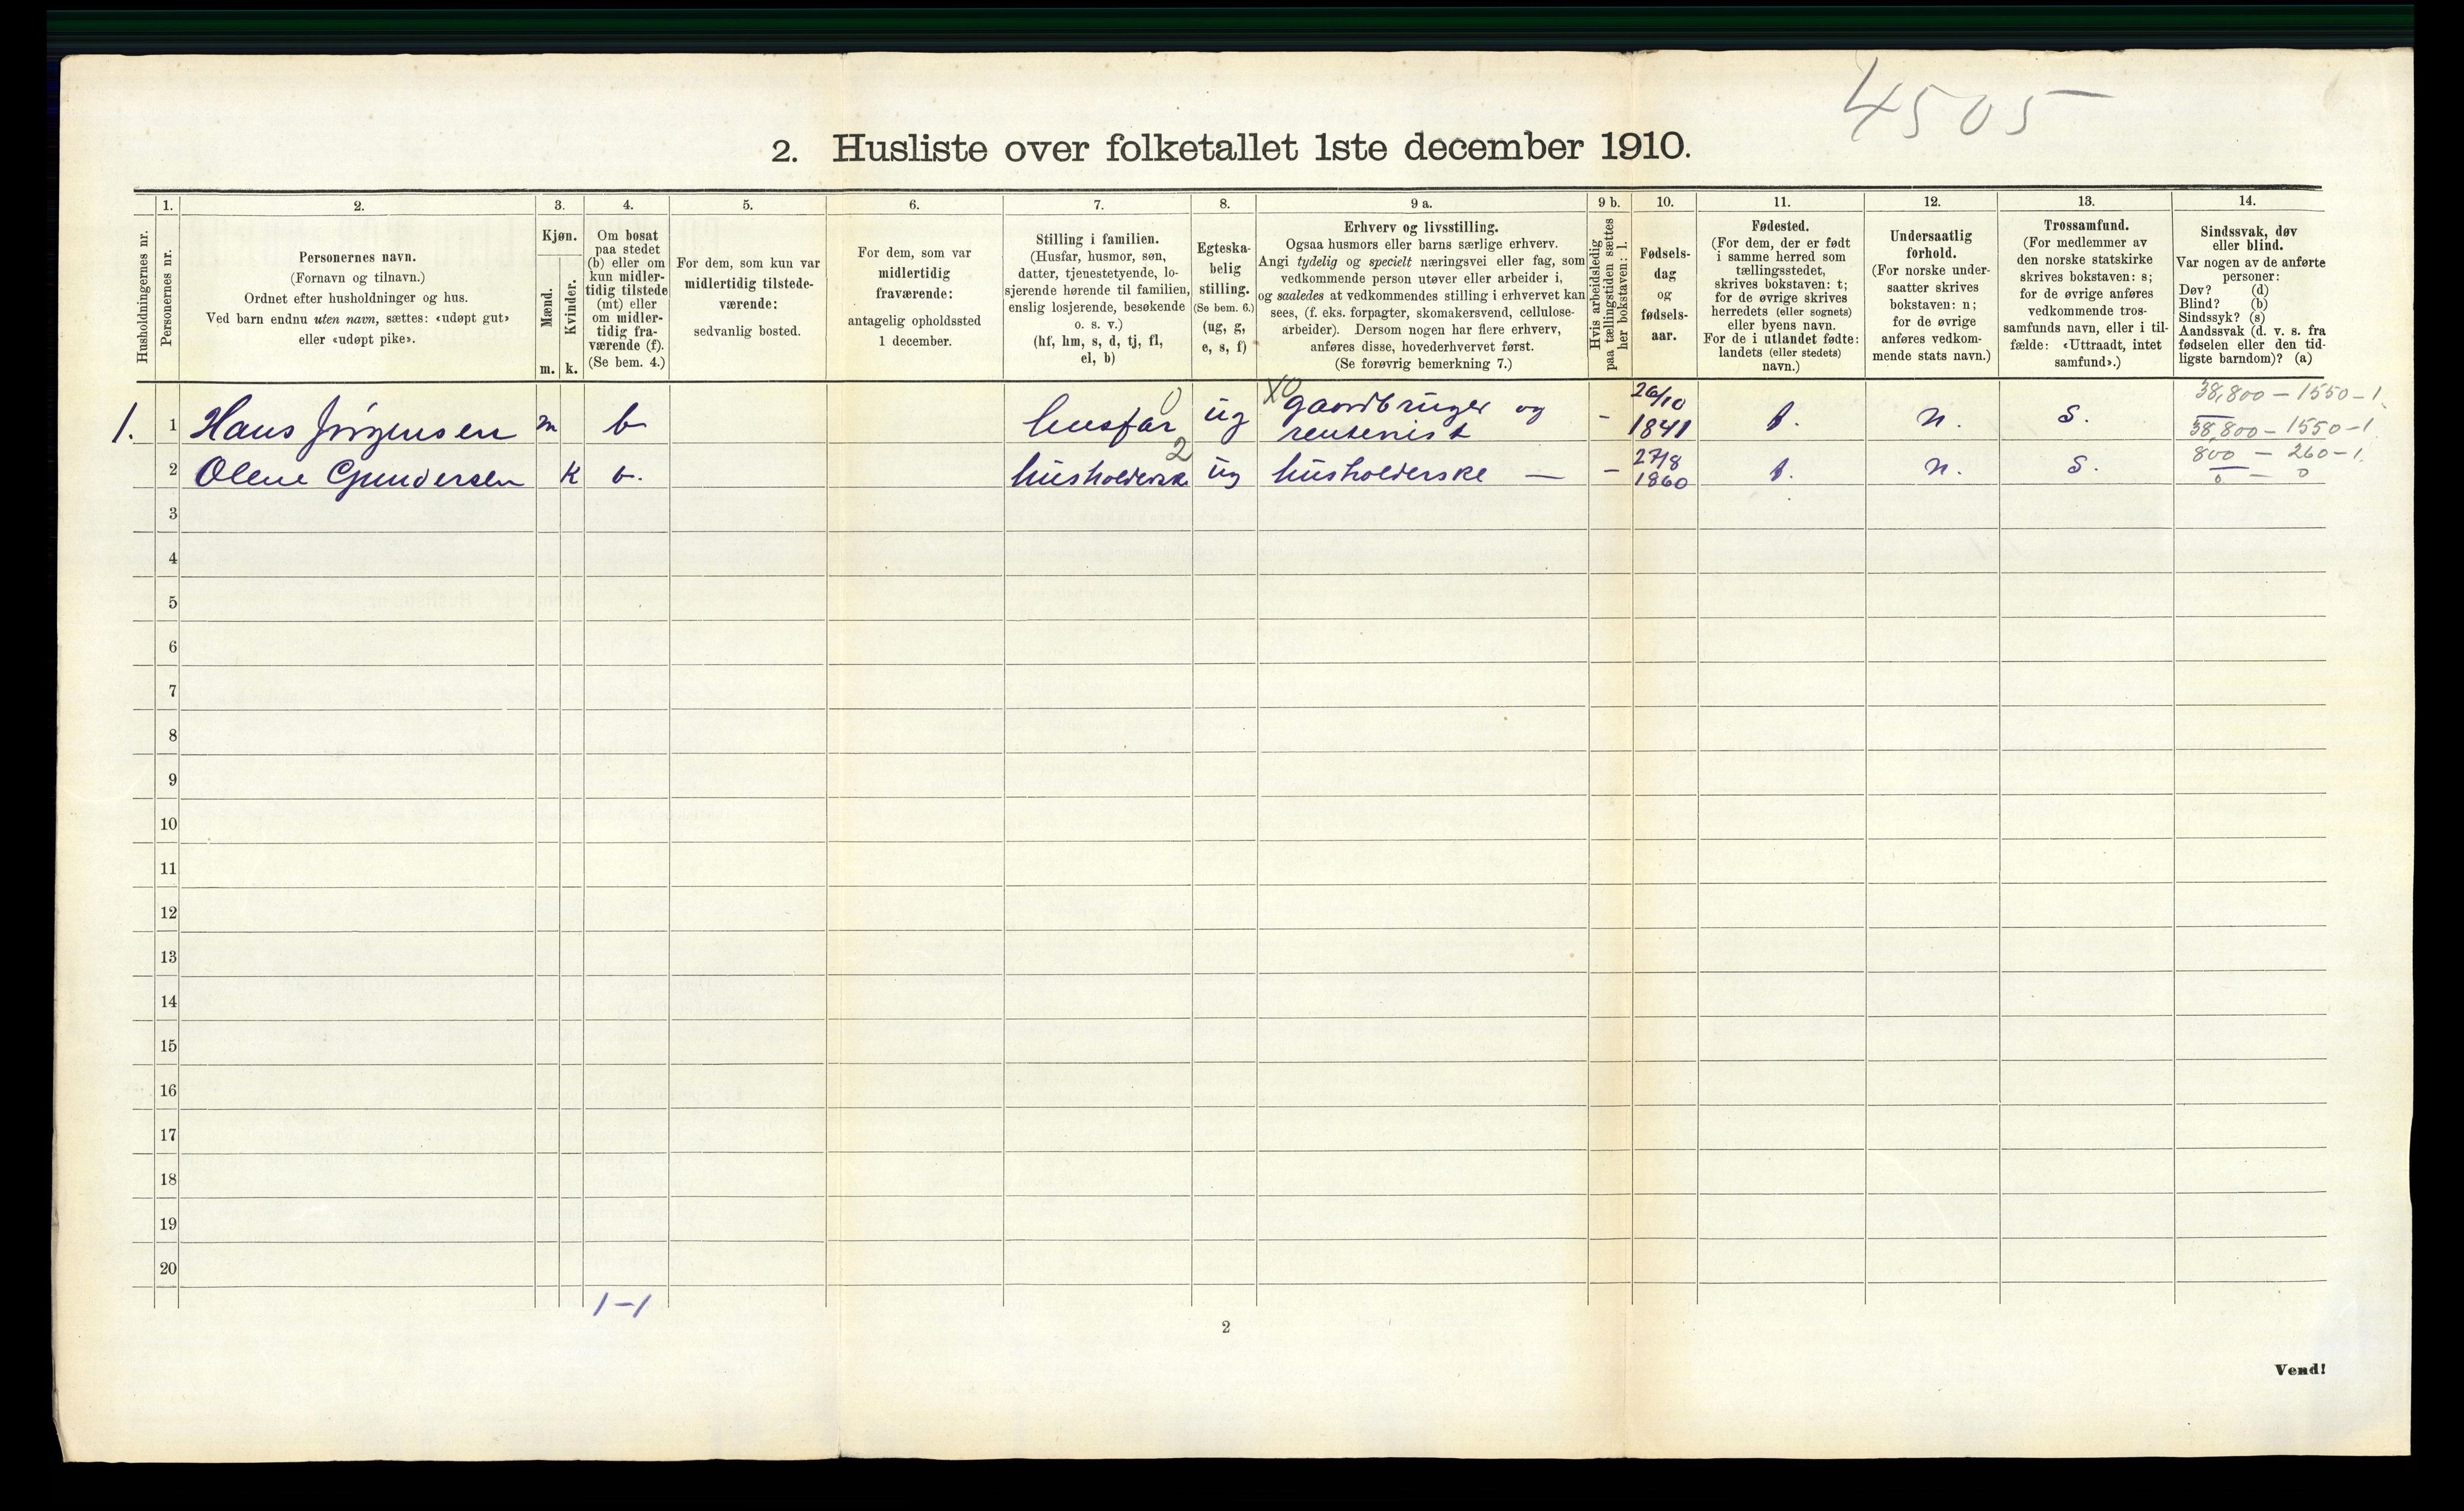 4505
2. Husliste over folketallet 1ste december 1910.
Husholdningernes nr.
1.
Personernes nr.
2.
Personernes navn.
(Fornavn og tilnavn.)
Ordnet efter husholdninger og hus.
Ved barn endnu uten navn, sættes: «udøpt gut»
eller «udøpt pike».
3.
Kjøn.
Mænd.
Kvinder.
m. k.
4.
Om bosat
paa stedet
(b) eller om
kun midler-
tidig tilstede
(mt) eller
om midler-
tidig fra-
værende (f).
(Se bem. 4.)
5.
For dem, som kun var
midlertidig tilstede-
værende:
sedvanlig bosted.
6.
For dem, som var
midlertidig
fraværende:
antagelig opholdssted
1 december.
7.
Stilling i familien.
(Husfar, husmor, søn,
datter, tjenestetyende, lo-
sjerende hørende til familien,
enslig losjerende, besøkende
o. s. v.)
(hf, hm, s, d, tj, fl,
el, b)
8.
Egteska-
belig
stilling.
(Se bem. 6.)
(ug, g,
e, s, f)
9 a.
Erhverv og livsstilling.
Ogsaa husmors eller barns særlige erhverv.
Angi tydelig og specielt næringsvei eller fag, som
vedkommende person utøver eller arbeider i,
og saaledes at vedkommendes stilling i erhvervet kan
sees, (f. eks. forpagter, skomakersvend, cellulose-
arbeider). Dersom nogen har flere erhverv,
anføres disse, hovederhvervet først.
(Se forøvrig bemerkning 7.)
9 b.
Hvis arbeidsledig
paa tællingstiden sættes
her bokstaven: l.
10.
Fødsels-
dag
og
fødsels-
aar.
11.
Fødested.
(For dem, der er født
i samme herred som
tællingsstedet,
skrives bokstaven: t;
for de øvrige skrives
herredets (eller sognets)
eller byens navn.
For de i utlandet fødte:
landets (eller stedets)
navn.)
12.
Undersaatlig
forhold.
(For norske under-
saatter skrives
bokstaven: n;
for de øvrige
anføres vedkom-
mende stats navn.)
13.
Trossamfund.
(For medlemmer av
den norske statskirke
skrives bokstaven: s;
for de øvrige anføres
vedkommende tros-
samfunds navn, eller i til-
fælde: «Uttraadt, intet
samfund».)
14.
Sindssvak, døv
eller blind.
Var nogen av de anførte
personer:
Døv? (d)
Blind? (b)
Sindssyk? (s)
Aandssvak (d. v. s. fra
fødselen eller den tid-
ligste barndom)? (a)
38,800 – 1550 – 1.
1. 1 Hans Jörgensen m b husfar 0 ug X0 gaardbruger og rentenist – 26/10 1841 t. n. s. 38,800 – 1550 – 1
2 Olene Gundersen k b. husholderske 2 ug husholderske — – 27/8 1860 t. n. s. 800 – 260 – 1.
0 – 0
3
4
5
6
7
8
9
10
11
12
13
14
15
16
17
18
19
20
1 – 1
2
Vend!